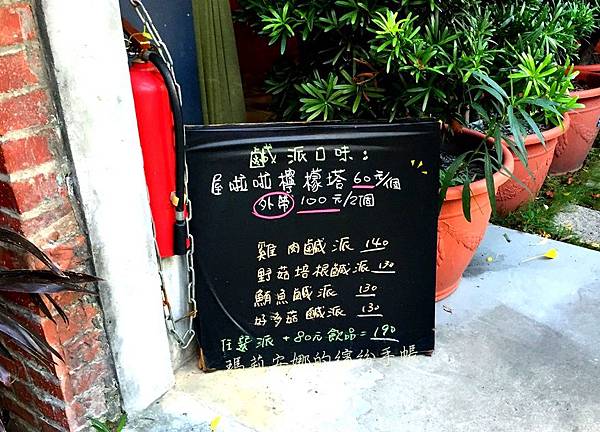 鹹派口味：
屋啦啦檸檬塔60元/個
外帶 100元/2個
雞肉鹹派 140
野菇培根鹹派 130
鮪魚鹹派 130
好多菇鹹派 130
任選派 +80元飲品=190
瑪莉安娜的繽紛手帳